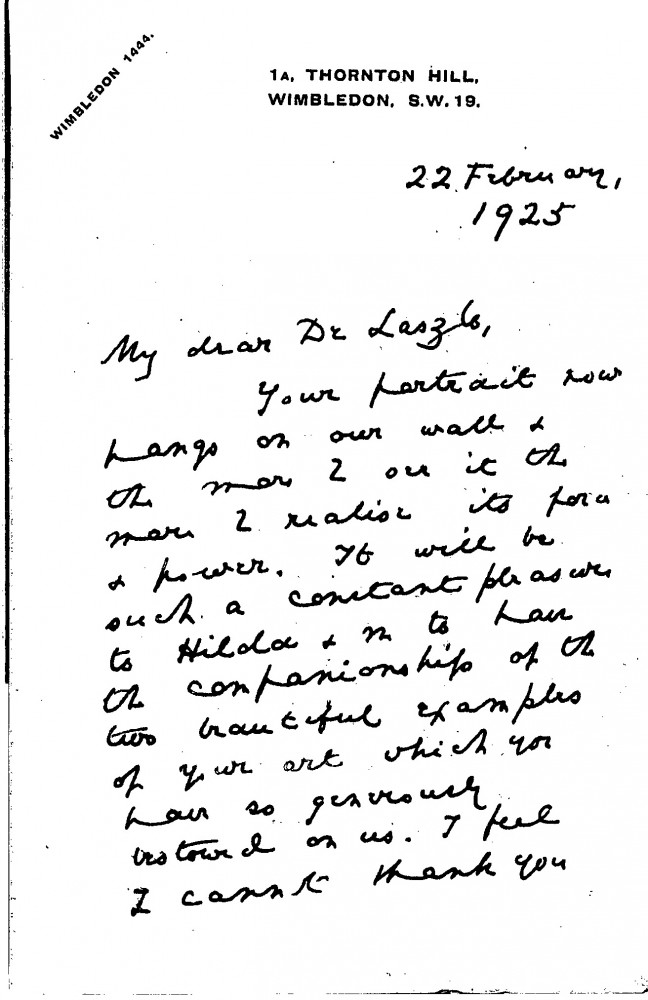 WIMBLEDON 1444.
1A, THORNTON HILL,
WIMBLEDON, S.W. 19.
22 February,
1925
My dear De Laszlo,
Your portrait now
hangs on our wall &
the more I see it the
more I realise its force
& power. It will be
such a constant pleasure
to Hilda & me to have
the companionship of the
two beautiful examples
of your art which you
have so generously
bestowed on us. I feel
I cannot thank you